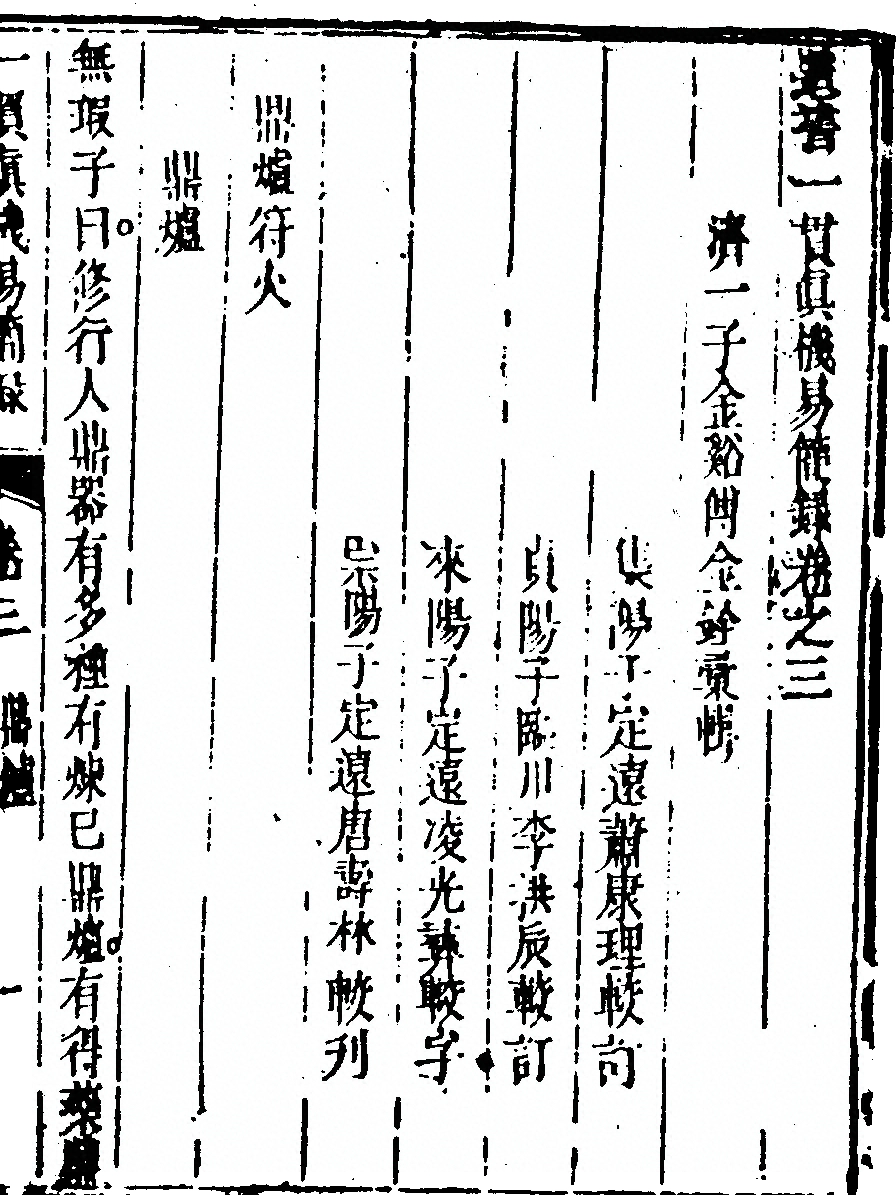 道書一貫真機易簡錄卷之三
濟一子金谿傅金銓彙輯
陽子定遠蕭康理較訂
貞陽子臨川李洪辰較訂
來陽子定遠凌光彝較字
崇陽子定遠唐壽林較列
鼎爐符火
鼎爐
無瑕子曰修行人鼎器有多種有煉已鼎爐有得藥鼎
一貫真機易簡錄 卷三 鼎爐 一